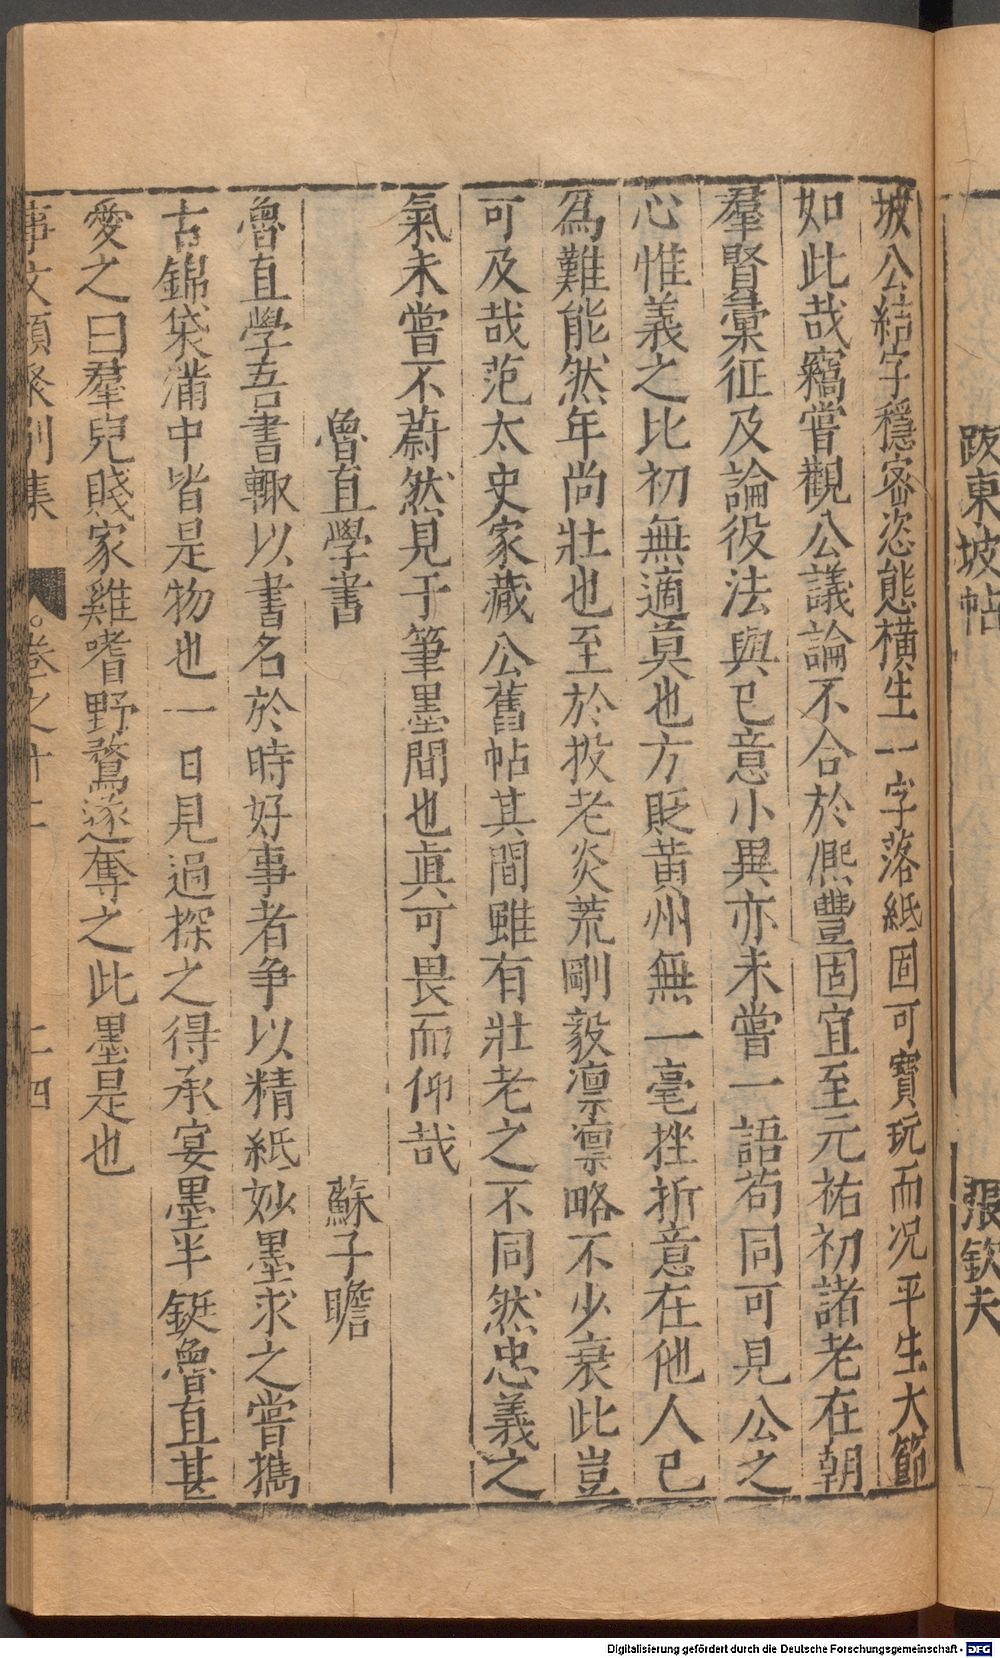 跋東坡帖 張欽夫
坡公結字穩密恣態橫生一字落紙固可寶玩而况平生大節
如此哉竊嘗觀公議論不合於熈豐固宜至元祐初諸老在朝
羣賢彙征及論役法與已意小異亦未嘗一語茍同可見公之
心惟義之比初無適莫也方貶黄州無一毫挫折意在他人已
為難能然年尚壯也至於投老炎荒剛毅凛凛略不少衰此豈
可及哉范太史家藏公舊帖其間雖有壯老之不同然忠義之
氣未嘗不蔚然見于筆墨間也真可畏而仰哉
魯直學書 蘇子瞻
魯直學吾書輙以書名於時好事者争以精紙妙墨求之嘗攜
古錦袋滿中皆是物也一日見過探之得承宴墨半鋌魯直甚
愛之曰羣兒賤家雞嗜野鶩遂奪之此墨是也
事文類聚別集 卷之十二 十四
Digitalisierung gefördert durch die Deutsche Forschungsgemeinschaft - DFG